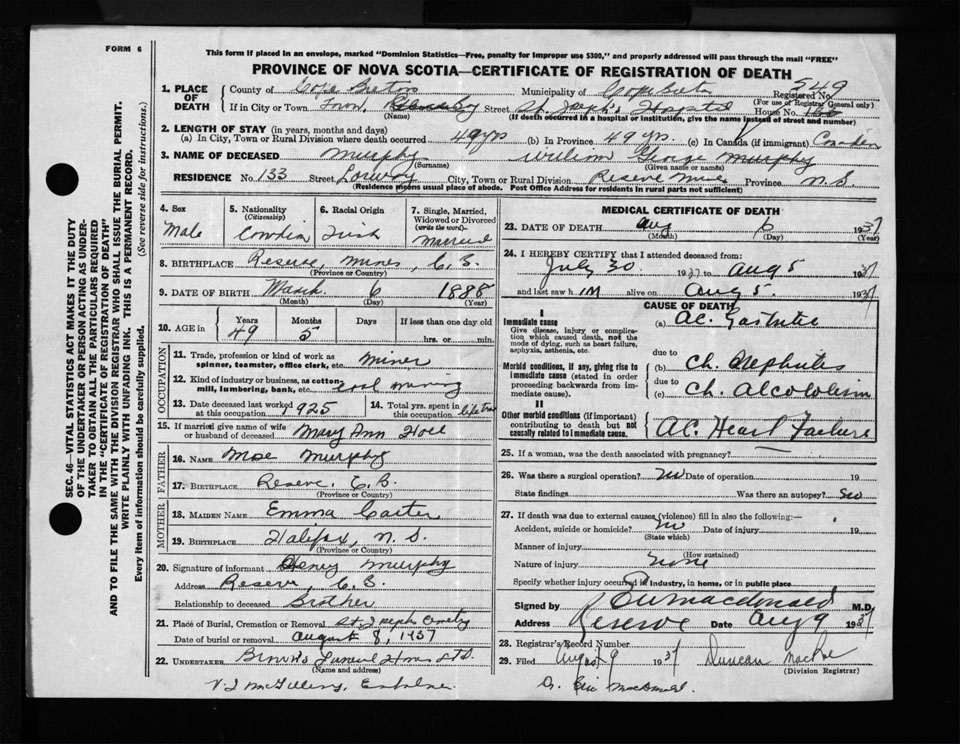 FORM 6
This form if placed in an envelope, marked "Dominion Statistics—Free, penalty for improper use $300," and properly addressed will pass through the mail "FREE"
PROVINCE OF NOVA SCOTIA—CERTIFICATE OF REGISTRATION OF DEATH
549
1. PLACE OF DEATH County of Cape Breton Municipality of Cape Breton Registered No.
(For use of Registrar General only)
If in City or Town Town, Glace Bay Street St. Joseph's Hospital House No.
(Name) (If death occurred in a hospital or institution, give the name instead of street and number)
2. LENGTH OF STAY (in years, months and days)
(a) In City, Town or Rural Division where death occurred 49 yrs (b) In Province 49 yrs. (c) In Canada (if immigrant)
3. NAME OF DECEASED Murphy William George Murphy
(Surname) (Given name or names)
RESIDENCE No. 133 Street Lorway City, Town or Rural Division Reserve Mines Province N.S.
(Residence means usual place of abode. Post Office Address for residents in rural parts not sufficient)
4. Sex 5. Nationality (Citizenship) 6. Racial Origin 7. Single, Married, Widowed or Divorced (write the word)
Male Irish Married
8. BIRTHPLACE Reserve, Mines, C.B.
(Province or Country)
9. DATE OF BIRTH March 6 1888
(Month) (Day) (Year)
10. AGE in Years Months Days If less than one day old
49 5 hrs. or min.
OCCUPATION
11. Trade, profession or kind of work as spinner, teamster, office clerk, etc. miner
12. Kind of industry or business, as cotton mill, lumbering, bank, etc. coal mining
13. Date deceased last worked at this occupation 1925 14. Total yrs. spent in this occupation
15. If married give name of wife or husband of deceased Mary Ann
FATHER
16. NAME Moe Murphy
17. BIRTHPLACE Reserve, C.B.
(Province or Country)
MOTHER
18. MAIDEN NAME Emma Carter
19. BIRTHPLACE Halifax, N.S.
(Province or Country)
20. Signature of informant Henry Murphy
Address Reserve, C.B.
Relationship to deceased Brother
21. Place of Burial, Cremation or Removal St. Joseph Cemetery
Date of burial or removal August 8, 1937
22. UNDERTAKER Brown's Funeral Home Ltd.
(Name and address)
MEDICAL CERTIFICATE OF DEATH
23. DATE OF DEATH Aug 6 1937
(Month) (Day) (Year)
24. I HEREBY CERTIFY that I attended deceased from:
July 30 1937 to Aug 5 1937
and last saw him alive on Aug 5. 1937
CAUSE OF DEATH
I
Immediate cause
Give disease, injury or complication which caused death, not the mode of dying, such as heart failure, asphyxia, asthenia, etc.
(a) Ac. Gastritis
due to
Morbid conditions, if any, giving rise to immediate cause (stated in order proceeding backwards from immediate cause).
(b) Ch. Nephritis
due to
(c) Ch. Alcoholism
II
Other morbid conditions (if important) contributing to death but not causally related to immediate cause.
Ac. Heart Failure
25. If a woman, was the death associated with pregnancy?
26. Was there a surgical operation? No Date of operation 19
State findings Was there an autopsy? No
27. If death was due to external causes (violence) fill in also the following:—
Accident, suicide or homicide? No Date of injury 19
(State which)
Manner of injury
(How sustained)
Nature of injury None
Specify whether injury occurred in industry, in home, or in public place
Signed by Macdonald M.D.
Address Reserve Date Aug 9 1937
28. Registrar's Record Number
29. Filed August 9 1937 Duncan
(Division Registrar)
SEC. 46—VITAL STATISTICS ACT MAKES IT THE DUTY
OF THE UNDERTAKER OR PERSON ACTING AS UNDERTAKER TO OBTAIN ALL THE PARTICULARS REQUIRED
IN THE "CERTIFICATE OF REGISTRATION OF DEATH"
AND TO FILE THE SAME WITH THE DIVISION REGISTRAR WHO SHALL ISSUE THE BURIAL PERMIT.
WRITE PLAINLY WITH UNFADING INK. THIS IS A PERMANENT RECORD.
Every item of information should be carefully supplied. (See reverse side for instructions.)